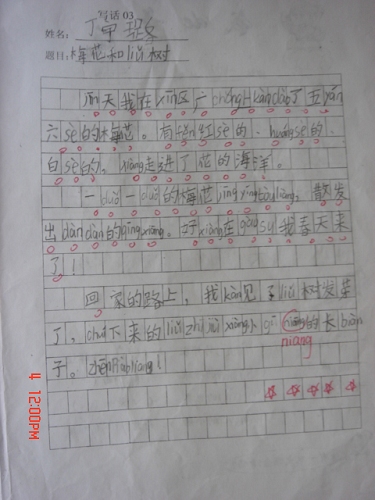 写话03
姓名：丁甲
题目：梅花和liǔ树
雨天我在xīn区广chǎng上kàn dào了五yán
六sè的梅花。有fěn红sè的、huáng sè的、
白sè的，xiàng走进了花的海洋。
一duǒ一duǒ的梅花jīng yíng tòu liàng，散发
出dàn dàn的qīng xiāng。xiàng在gào sù我春天来
了！
回家的路上，我kàn见了liǔ树发芽
了，chuí下来的liǔ zhī jiù xiàng小gū niang的长biàn
niang
子。zhēn piào liang！
4 12:00PM